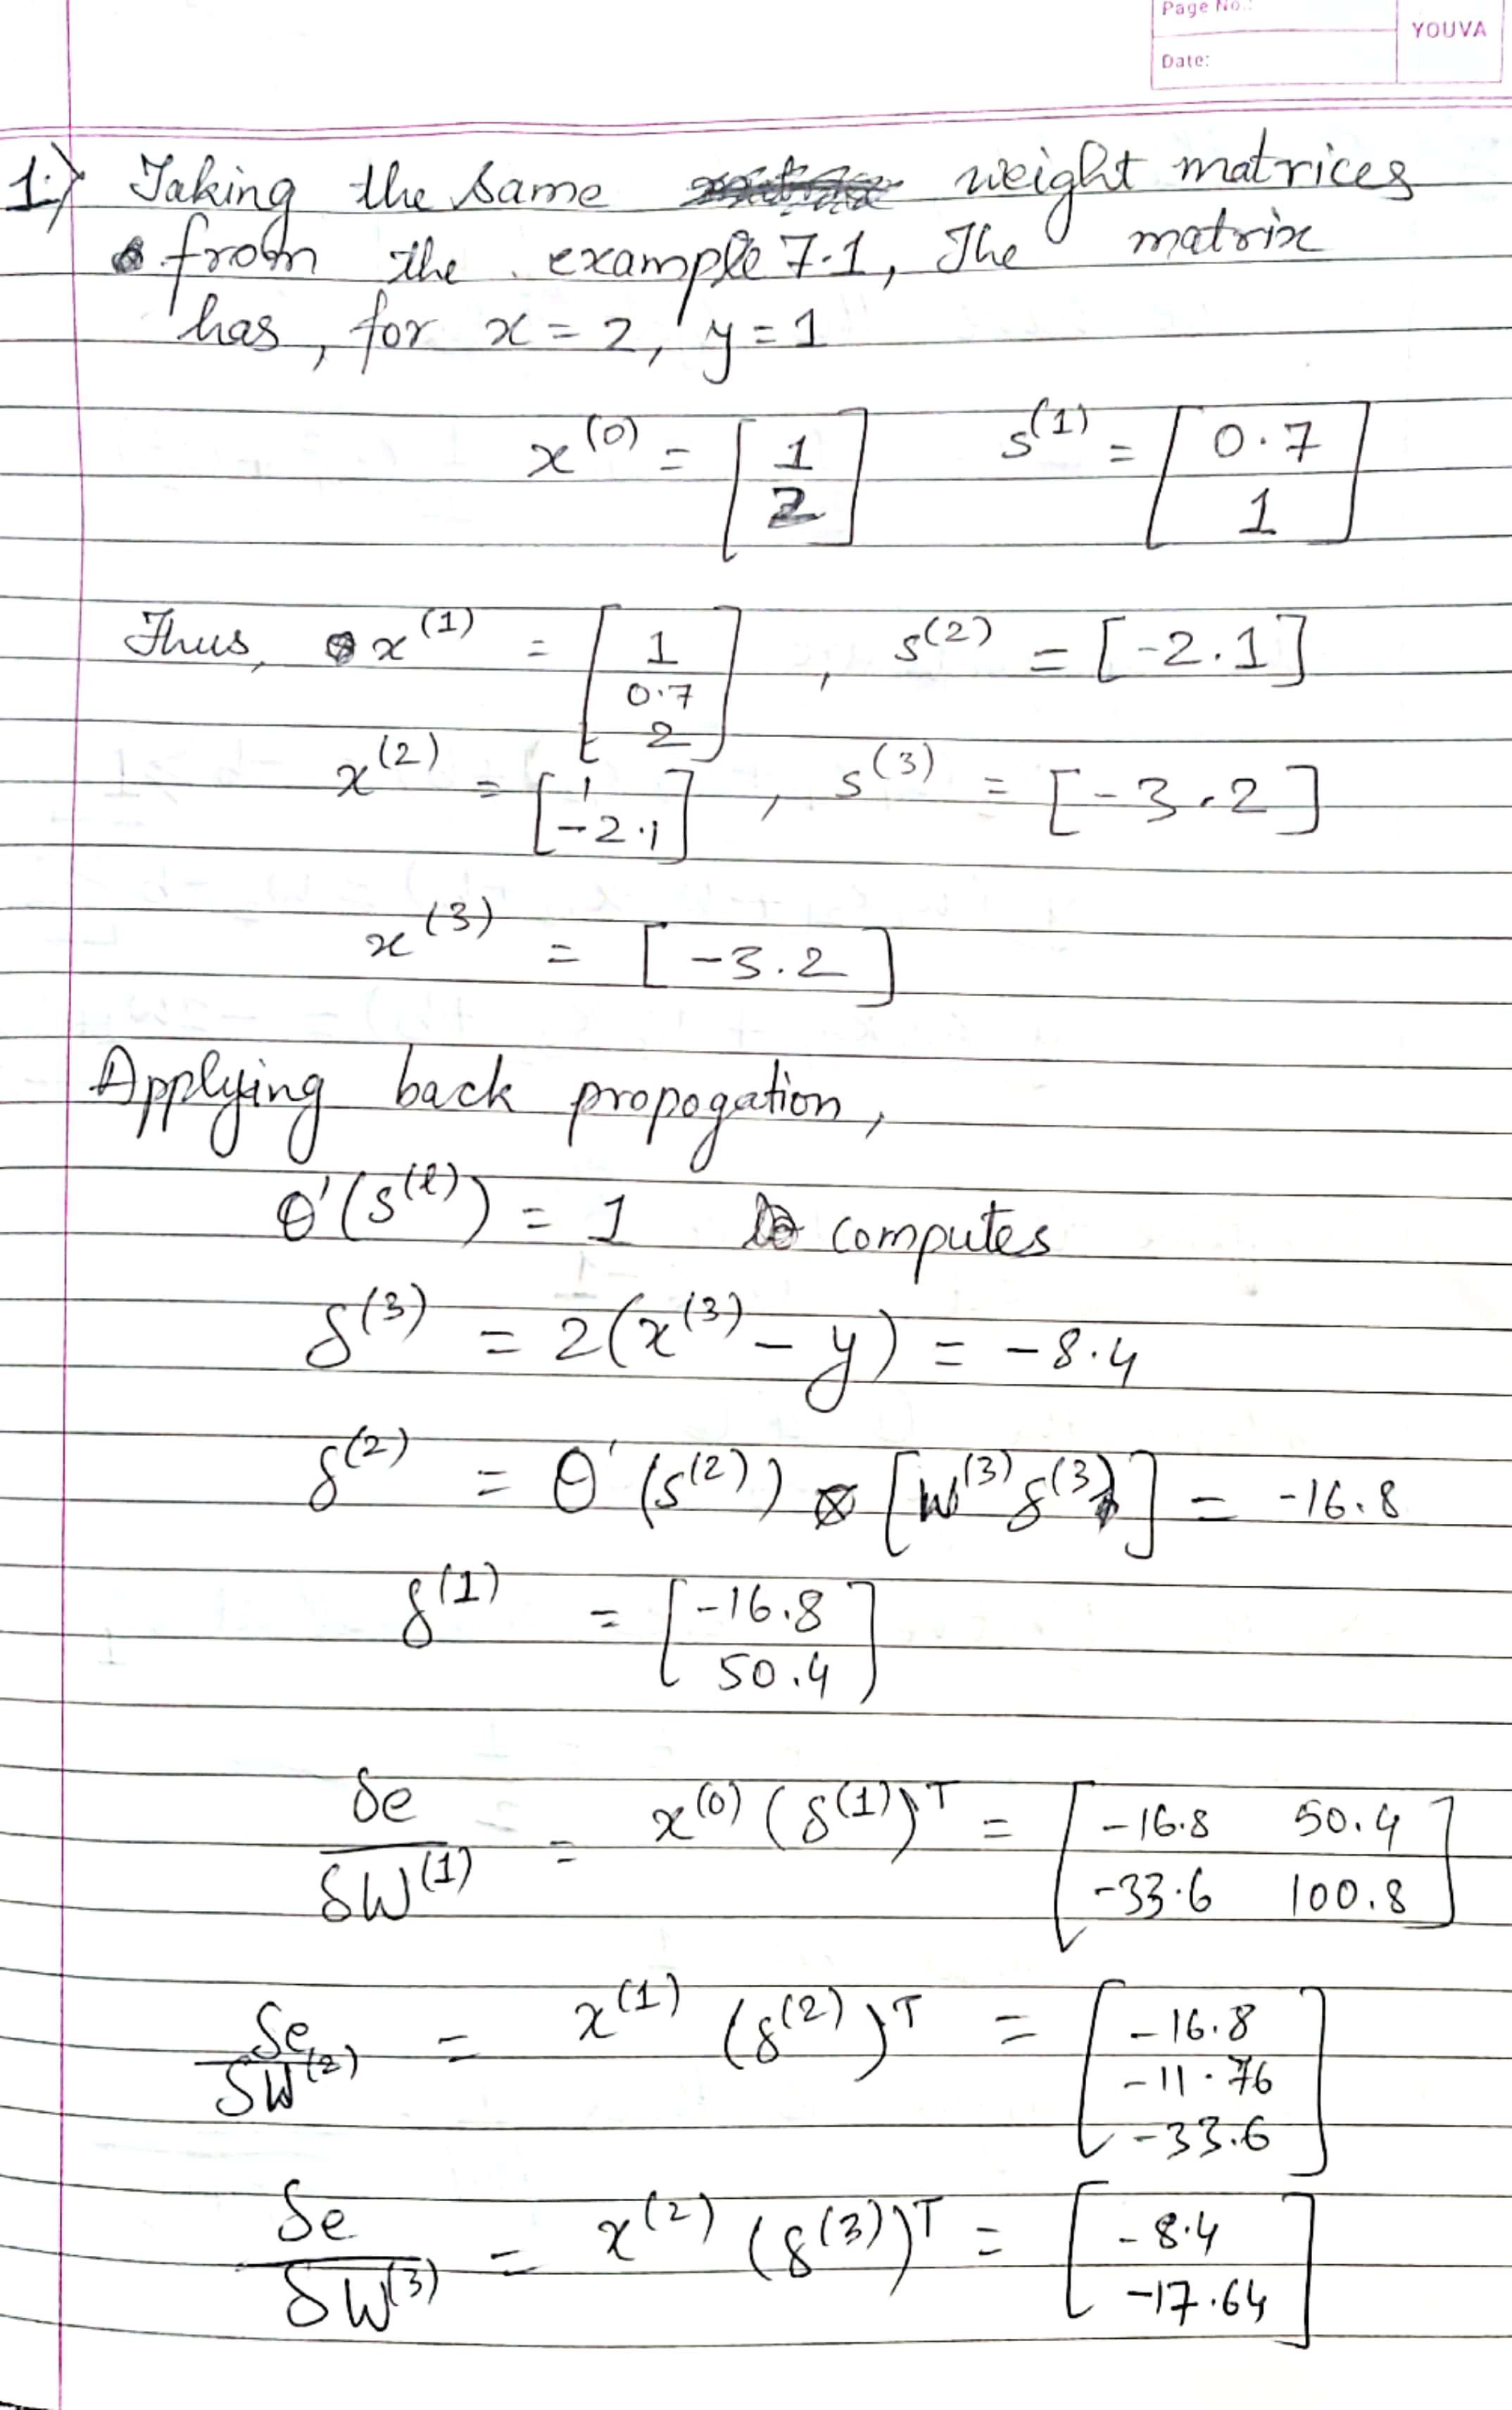 Page No.:
YOUVA
Date:
1.) Taking the same weight matrices
from the example 7.1, The matrix
has, for x = 2, y = 1
x^(0) = [1 2] s^(1) = [0.7 1]
Thus, x^(1) = [1 0.7 2], s^(2) = [-2.1]
x^(2) = [1 -2.1], s^(3) = [-3.2]
x^(3) = [-3.2]
Applying back propogation,
θ'(s^(l)) = 1 computes
δ^(3) = 2(x^(3) - y) = -8.4
δ^(2) = θ'(s^(2)) ⊗ [W^(3) δ^(3)] = -16.8
δ^(1) = [-16.8 50.4]
δe/δW^(1) = x^(0) (δ^(1))^T = [-16.8 50.4 -33.6 100.8]
δe/δW^(2) = x^(1) (δ^(2))^T = [-16.8 -11.76 -33.6]
δe/δW^(3) = x^(2) (δ^(3))^T = [-8.4 -17.64]